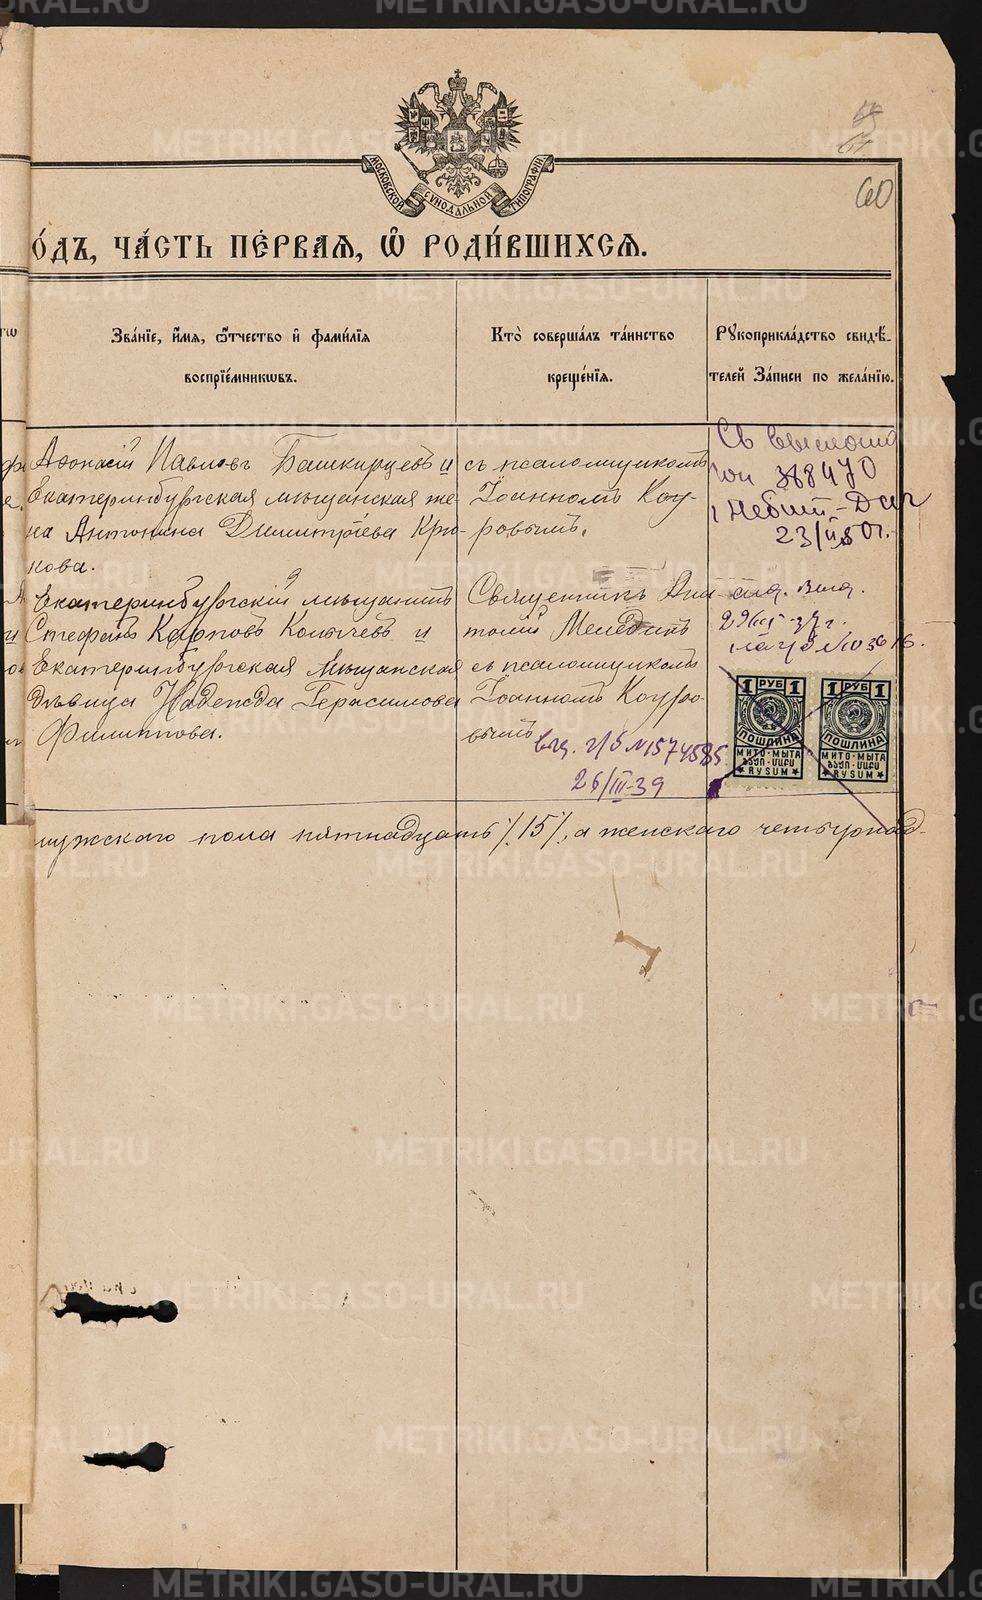 60
МОСКОВСКОЙ СѴНОДАЛЬНОЙ ТИПОГРАФІИ
О́ДЪ, ЧА́СТЬ ПЕ́РВАЯ, Ѽ РОДИ́ВШИХСЯ.
Зва́ніе, и҆́мя, ѻ҆́тчество и҆ фами́лія
воспріе́мникωвъ.
Кто̀ соверша́лъ та́инство
креще́нія.
Рꙋкоприкла́дство свидѣ́-
телей За́писи по жела́нію.
Афонасій Павловъ Башкирцевъ и
Екатеринбургская мѣщанская же-
на Антонина Димитріева Крю-
кова.
съ псаломщикомъ
Іоанномъ Коу-
ровымъ.
Св
388470
23/II 50г.
Екатеринбургскій мѣщанинъ
Стефанъ Карповъ Копычевъ и
Екатеринбургская мѣщанская
дѣвица Надежда Герасимова
Филиппова.
Священникъ Ана-
толій Мелединъ
съ псаломщикомъ
Іоанномъ Коуро-
вымъ
выд. г/б №1574585
26/III-39
37г.
1 РУБ 1
ПОШЛИНА
МИТО·МЫТА
RYSUM
1 РУБ 1
ПОШЛИНА
МИТО·МЫТА
RYSUM
мужского пола пятнадцать /15/, а женскаго четырнад-
METRIKI.GASO-URAL.RU